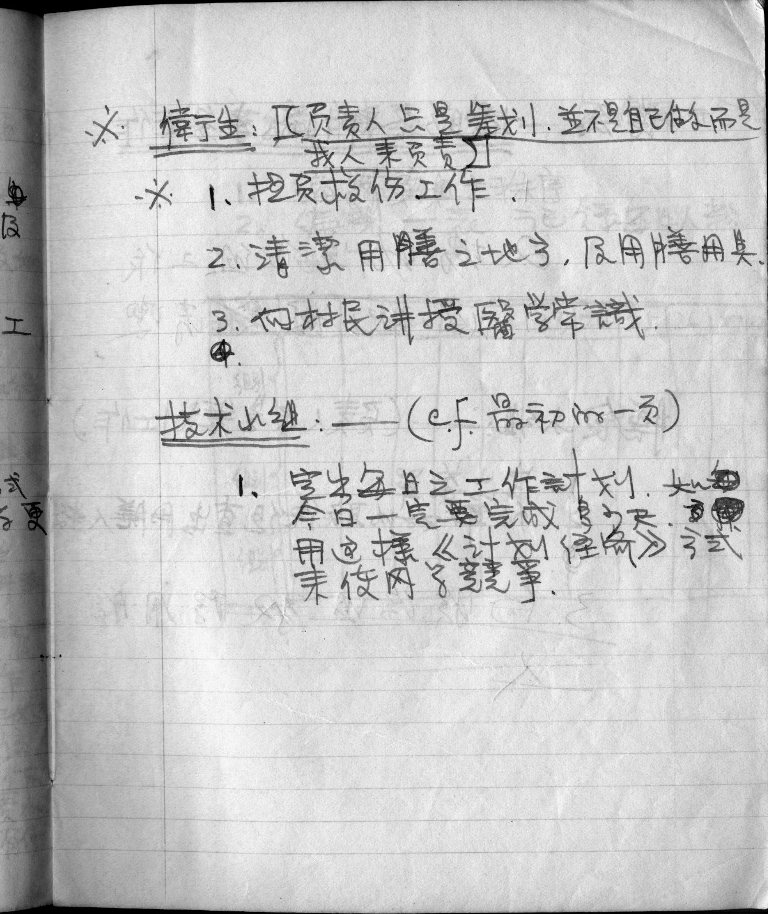 ※ 衛生：[负責人只是筹划．並不是自己做，而是
找人来负责]
※ 1、担負救伤工作．
2．清潔用膳之地方，及用膳用具．
3．向村民讲授醫学常識．
4.
技术小组：——（c.f. 最初的一页）
1、定出每日之工作計划．如
今日一定要完成多少尺．
用这樣《计划经济》方式
来使同学競争．
及
工
式
更